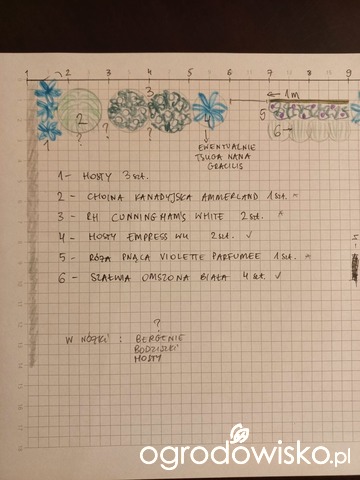 1 2 3 4 5 6 7 8 9
← 1m
3
2
5
6
1
?
?
?
4
EWENTUALNIE
TSUGA NANA
GRACILIS
1 - HOSTY 3 szt.
2 - CHOINA KANADYJSKA AMMERLAND 1 szt.
3 - RH CUNNINGHAM'S WHITE 2 szt.
4 - HOSTY EMPRESS WU 2 szt. ✓
5 - RÓŻA PNĄCA VIOLETTE PARFUMEE 1 szt.
6 - SZAŁWIA OMSZONA BIAŁA 4 szt. ✓
?
W NÓŻKI : BERGENIE
BODZISZKI
HOSTY
ogrodowisko.pl